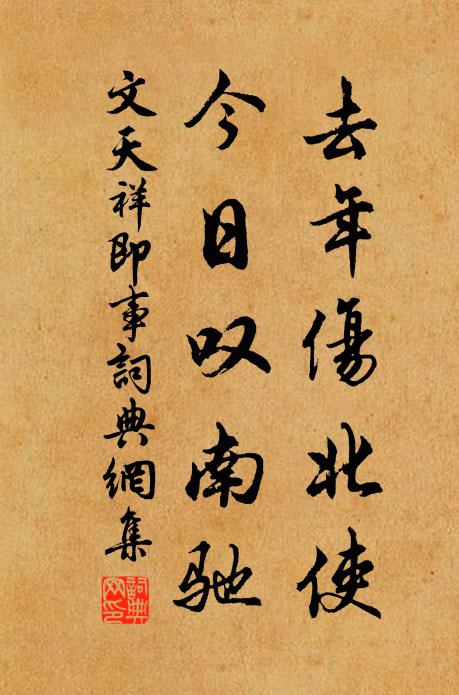 去年傷北使
今日叹南驰
文天祥即事詞典網集
詞典網印